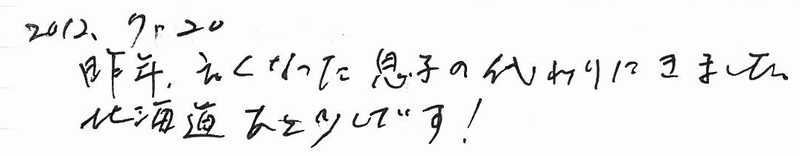 2012、7、20
昨年、亡くなった息子の代わりにきました。
北海道あと少しです!